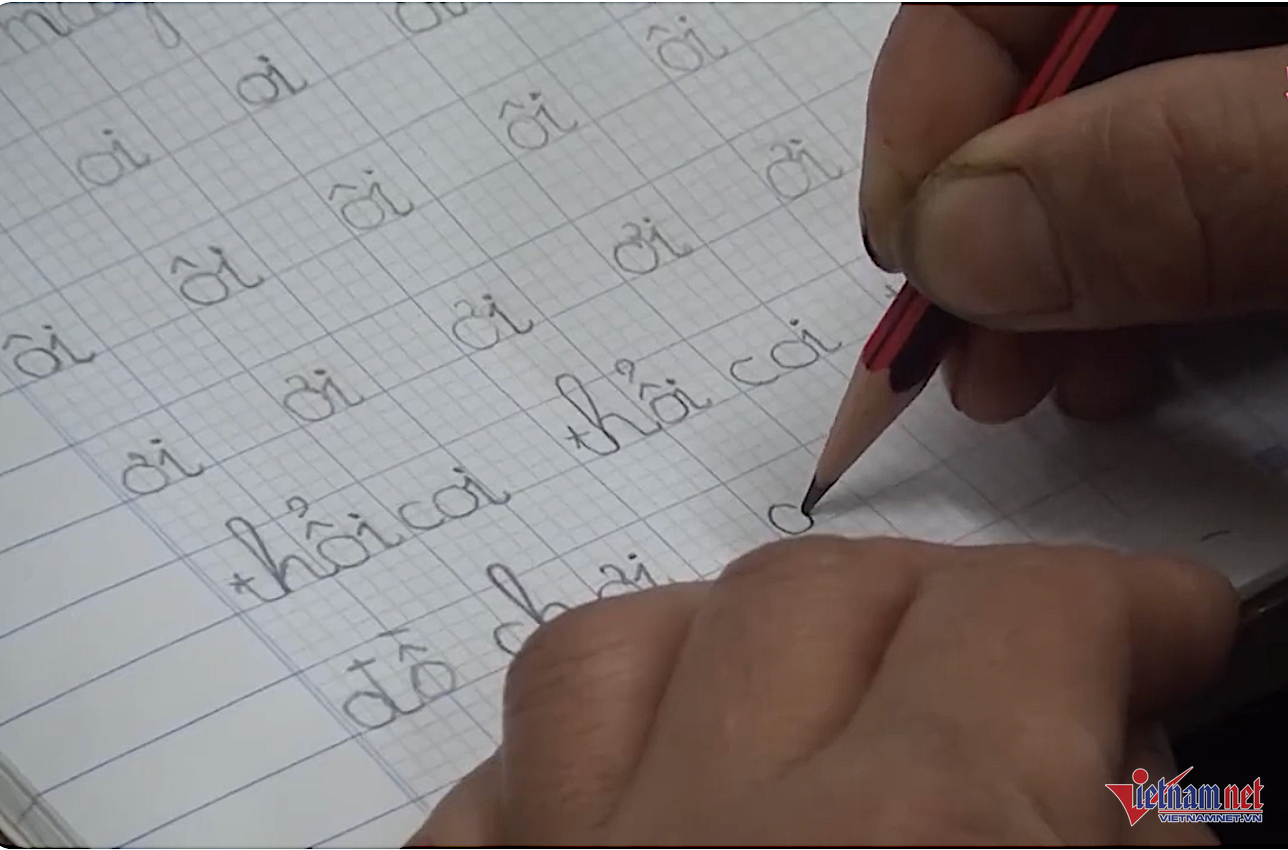 oi oi oi
ôi ôi ôi ôi ôi
ơi ơi ơi ơi ơi
thổi coi thổi coi
đồ chơi
Vietnamnet
VIETNAMNET.VN